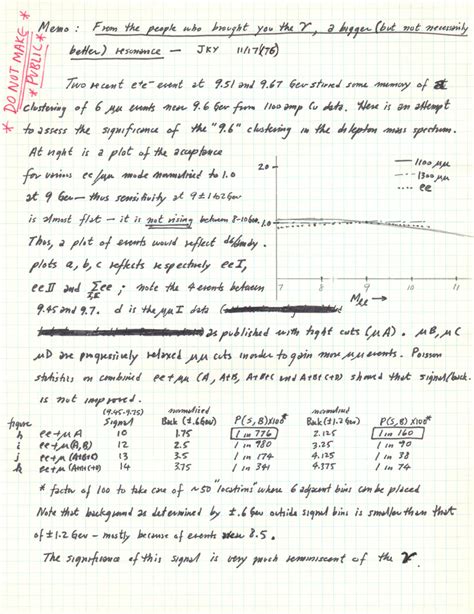 * DO NOT MAKE *
* PUBLIC *
Memo: From the people who brought you the ϒ, a bigger (but not necessarily
better) resonance — JKY 11/17(76)
Two recent e⁺e⁻ event at 9.51 and 9.67 Gev stirred some memory of a
clustering of 6 μμ events near 9.6 Gev from 1100 amp Cu data. Here is an attempt
to assess the significance of the "9.6" clustering in the dilepton mass spectrum.
At right is a plot of the acceptance
for various ee/μμ mode normalized to 1.0
at 9 Gev — thus sensitivity at 9 ± 1 to 2 Gev
is almost flat — it is not rising between 8-10 Gev.
Thus, a plot of events would reflect dσ/dmdy.
plots a, b, c reflects respectively ee I,
ee II and Σ ee ; note the 4 events between
I,II
9.45 and 9.7. d is the μμ I data
2.0
1.0
— 1100 μμ
--- 1300 μμ
.... ee
7 8 9 10 11
M ee →
as published with tight cuts (μA). μB, μC
μD are progressively relaxed μμ cuts in order to gain more μμ events. Poisson
statistics on combined ee+μμ (A, A+B, A+B+C and A+B+C+D) showed that signal/back.
is not improved.
(9.45-9.75) normalized normalized
figure Signal Back (±.6 Gev) P(S,B)X100* Back (±1.2 Gev) P(S,B)X100*
h ee+μA 10 1.75 1 in 776 2.125 1 in 160
i ee+μ(A,B) 12 2.5 1 in 980 3.125 1 in 90
j ee+μ(A+B+C) 13 3.5 1 in 174 4.125 1 in 38
k ee+μ(A+B+C+D) 14 3.75 1 in 341 4.375 1 in 74
* factor of 100 to take care of ~50 "locations" where 6 adjacent bins can be placed
Note that background as determined by ±.6 Gev outside signal bins is smaller than that
of ±1.2 Gev - mostly because of events 8.5.
The significance of this signal is very much reminiscent of the ϒ.